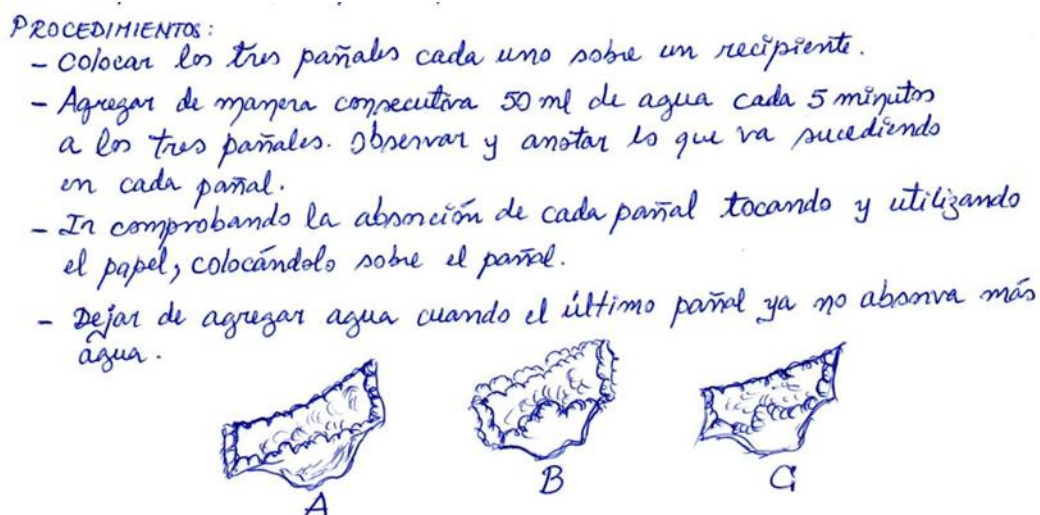 PROCEDIMIENTOS:
- Colocar los tres pañales cada uno sobre un recipiente.
- Agregar de manera consecutiva 50 ml de agua cada 5 minutos
a los tres pañales. Observar y anotar lo que va sucediendo
en cada pañal.
- Ir comprobando la absorción de cada pañal tocando y utilizando
el papel, colocándolo sobre el pañal.
- Dejar de agregar agua cuando el último pañal ya no absorva más
agua.
A B C